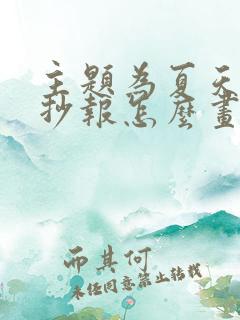 主題為夏天
抄報怎麼畫
而其何
未经同意禁止转载